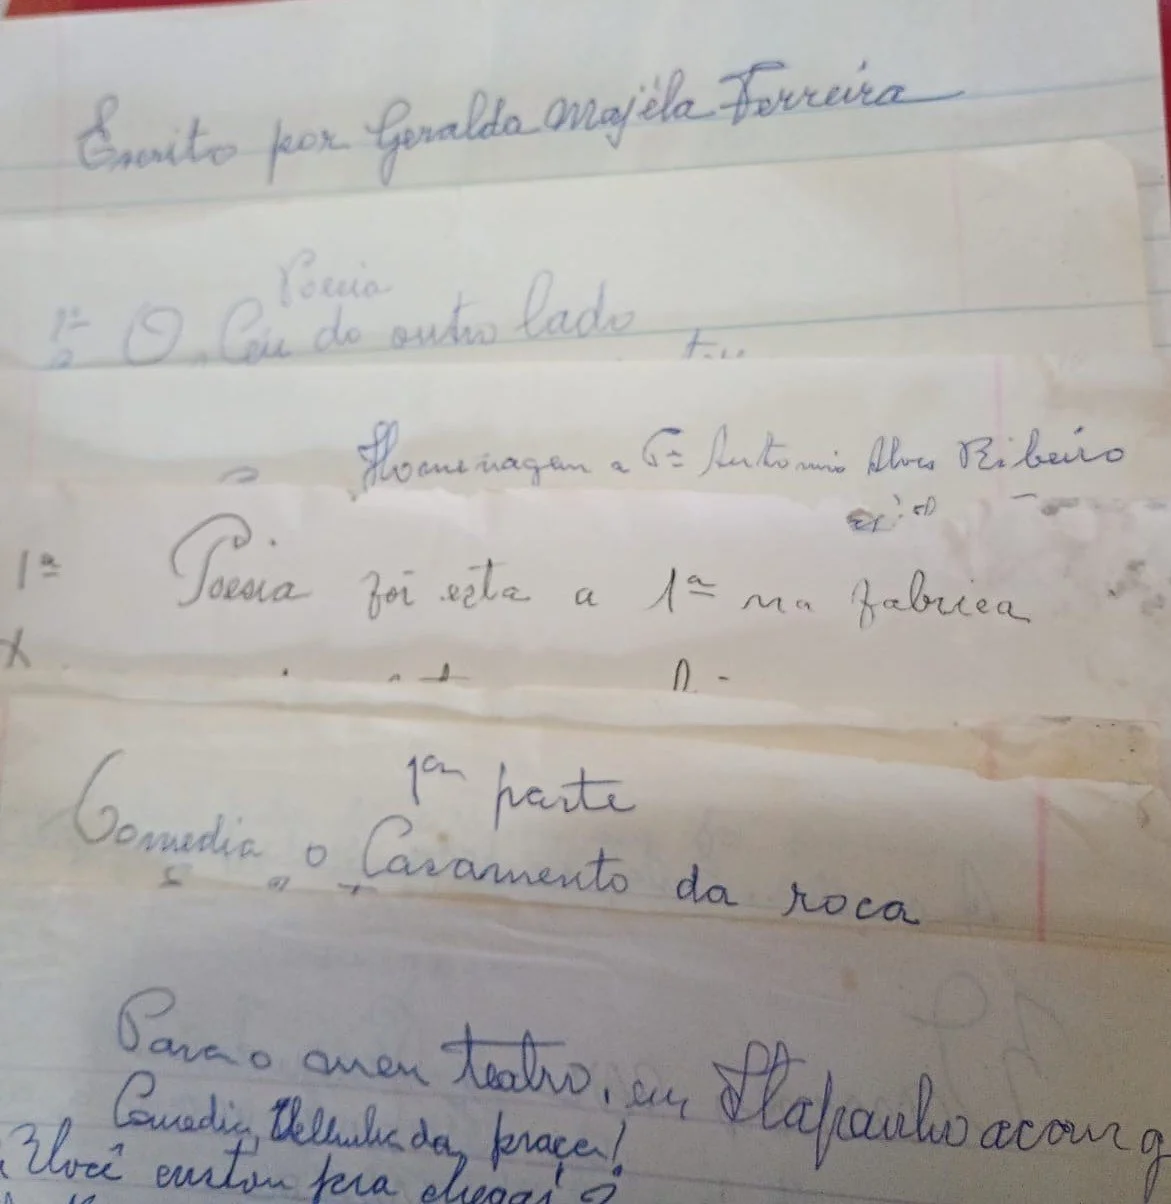 Escrito por Geralda Majéla Ferreira
Poesia
1ª O Céu do outro lado
Homenagem a Antonio Alves Ribeiro
1ª Poesia foi esta a 1ª na fabrica
1ª parte
Comedia o Casamento da roca
Para o meu teatro, em
Comedia, da praça!
Você custou pra chegar?